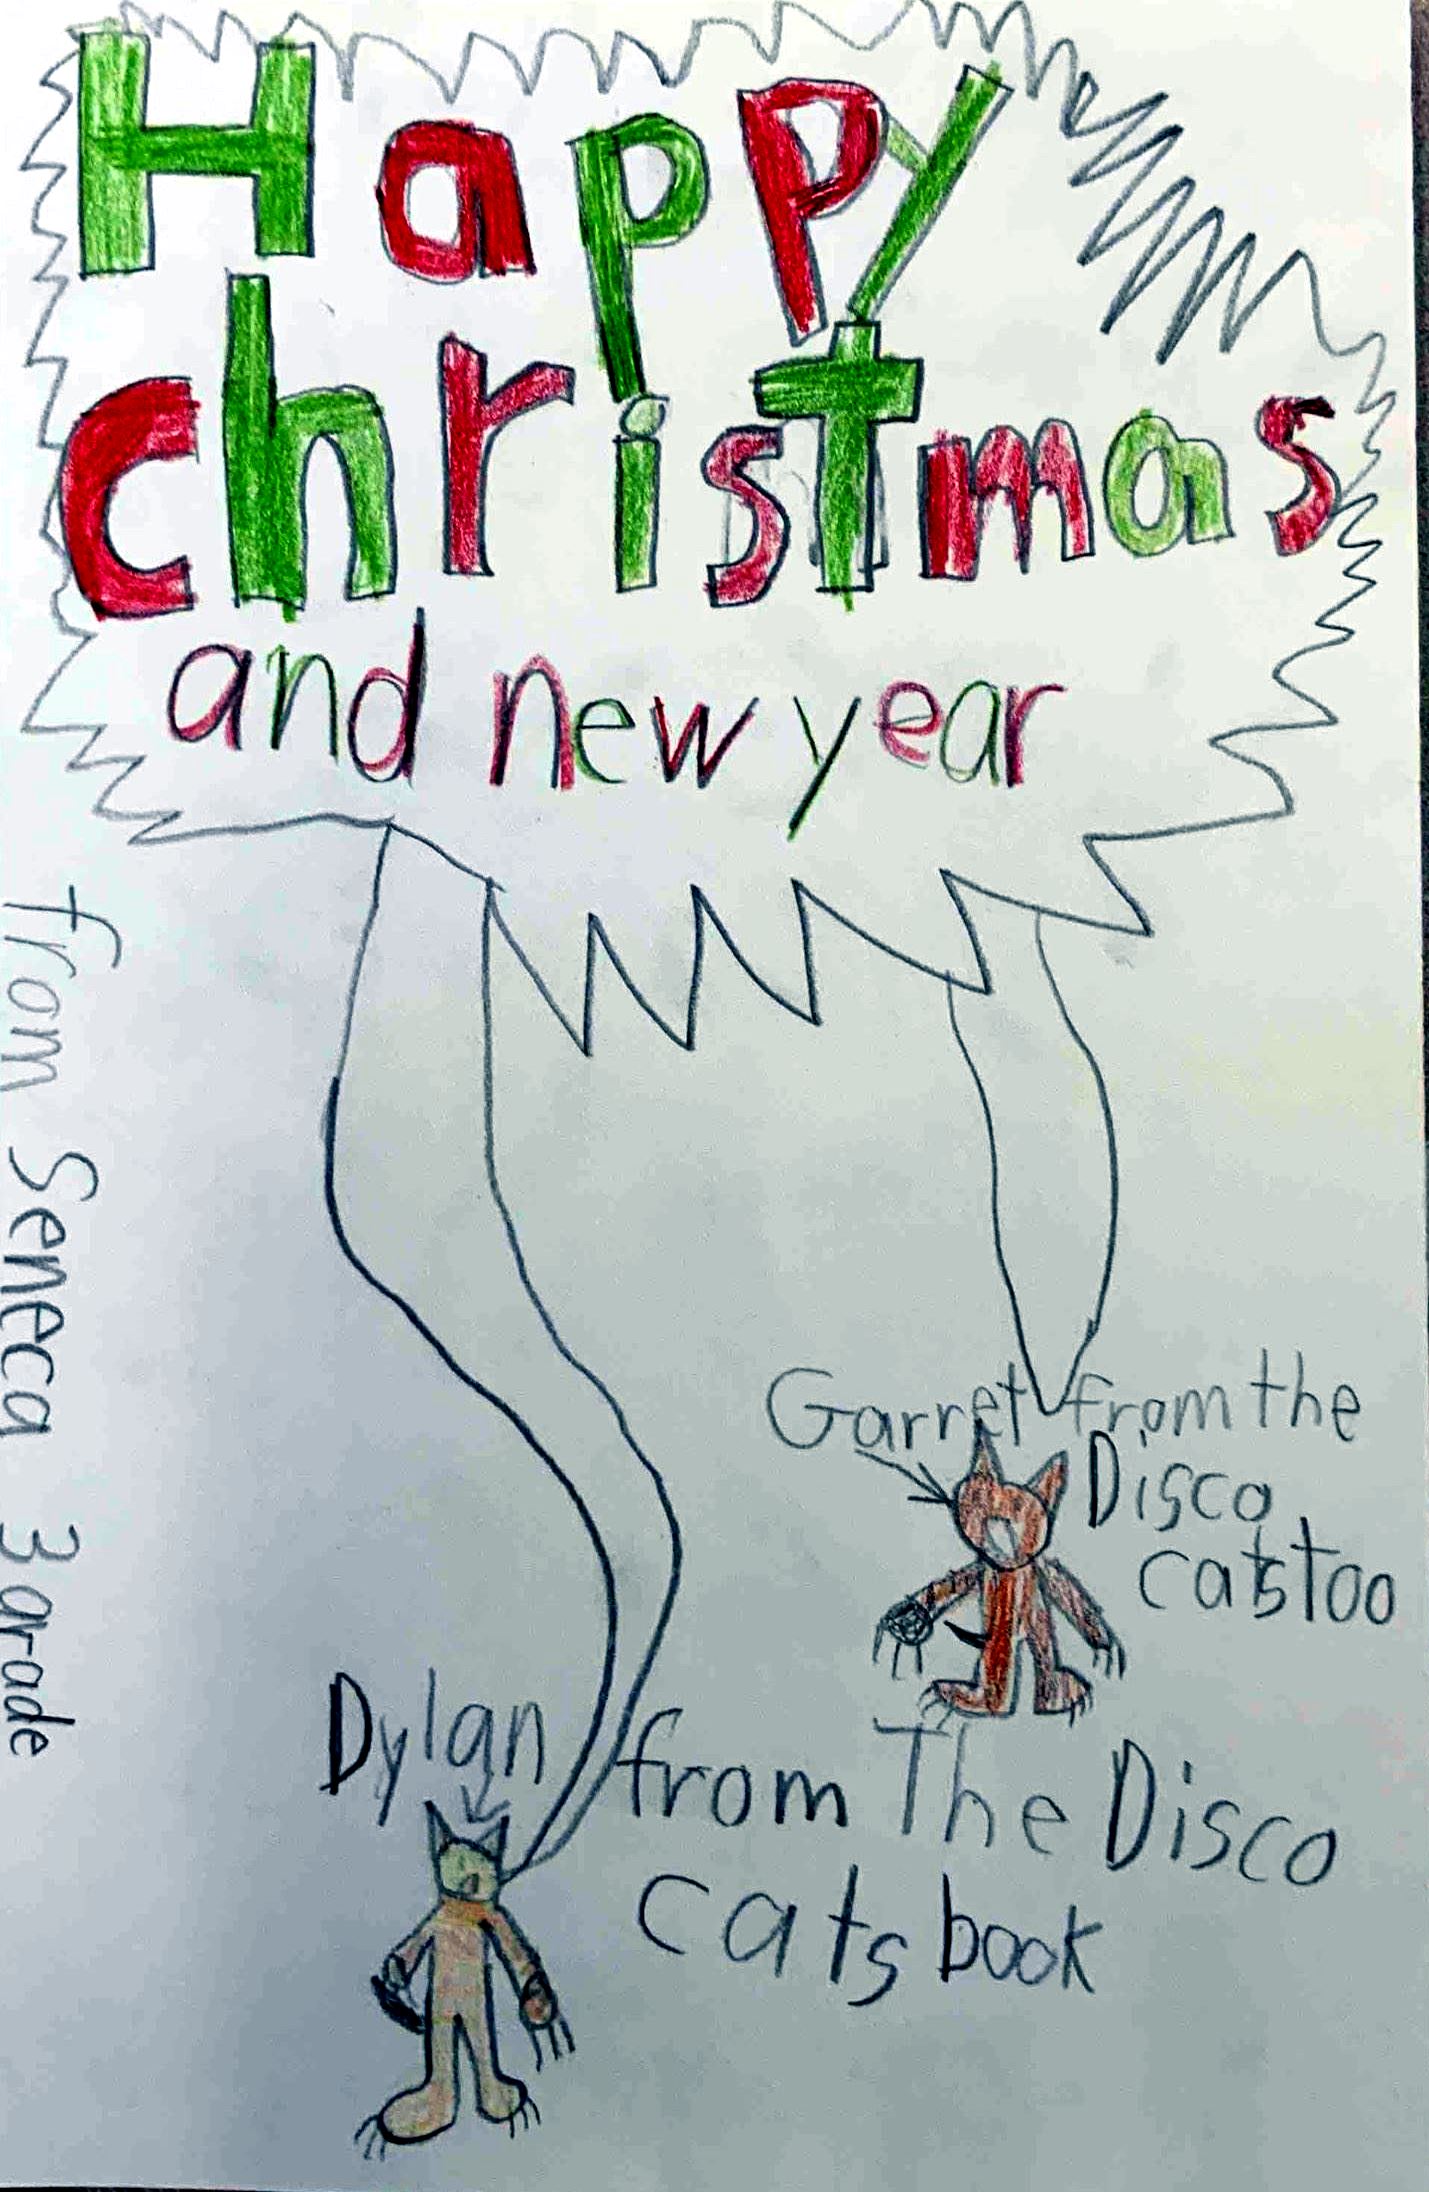 Happy
christmas
and new year
from Seneca 3 grade
Garret from the
Disco
cats too
Dylan from The Disco
cats book